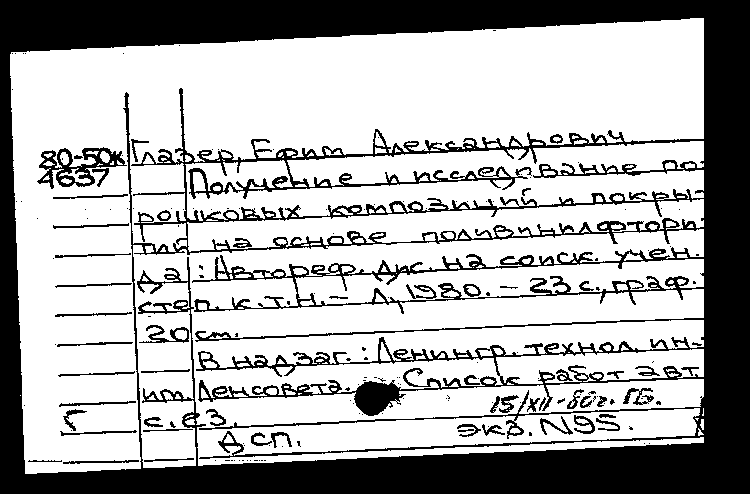 80-50к Глазер, Ефим Александрович.
4637 Получение и исследование по-
рошковых композиций и покры-
тий на основе поливинилфтори-
да: Автореф. дис. на соиск. учен.
степ. к.т.н. - Л., 1980. - 23 с., граф.
20 см.
В надзаг.: Ленингр. технол. ин-
им. Ленсовета. Список работ авт.
Г с. 23. 15/XII-80г. ГБ.
Дсп. экз. N95.